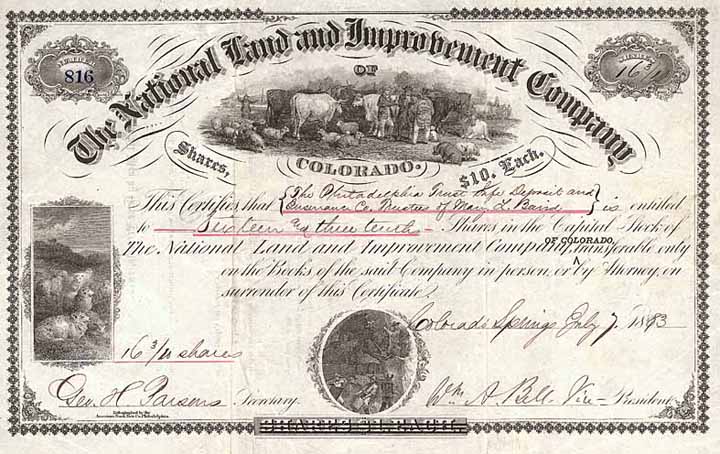 NUMBER
816
SHARES
The National Land and Improvement Company
OF
COLORADO.
Shares,
$10. Each.
This Certifies that { The Philadelphia Trust Safe Deposit and
Insurance Co. Trustees of Mary L Baird } is entitled
to Sixteen & three tenths Shares in the Capital Stock of
The National Land and Improvement Company, OF COLORADO, transferable only
on the Books of the said Company in person, or by Attorney, on
surrender of this Certificate.
Colorado Springs July 7, 1883
16 3/10 shares
Geo. H. Parsons Secretary.
Wm A. Bell Vice-President
Lithographed by the
American Bank Note Co. Philadelphia.